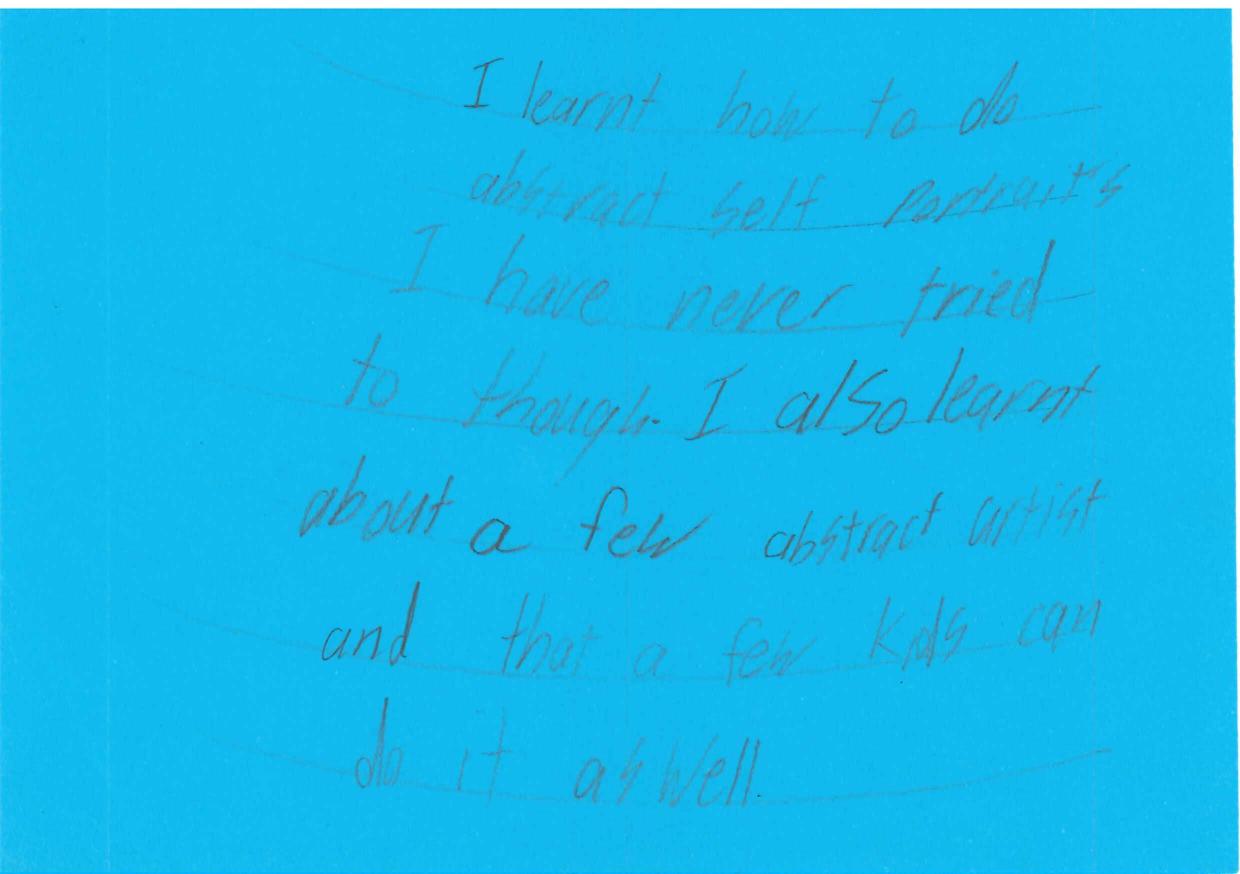 I learnt how to do
abstract self portraits
I have never tried
to though. I also learnt
about a few abstract artist
and that a few kids can
do it as well